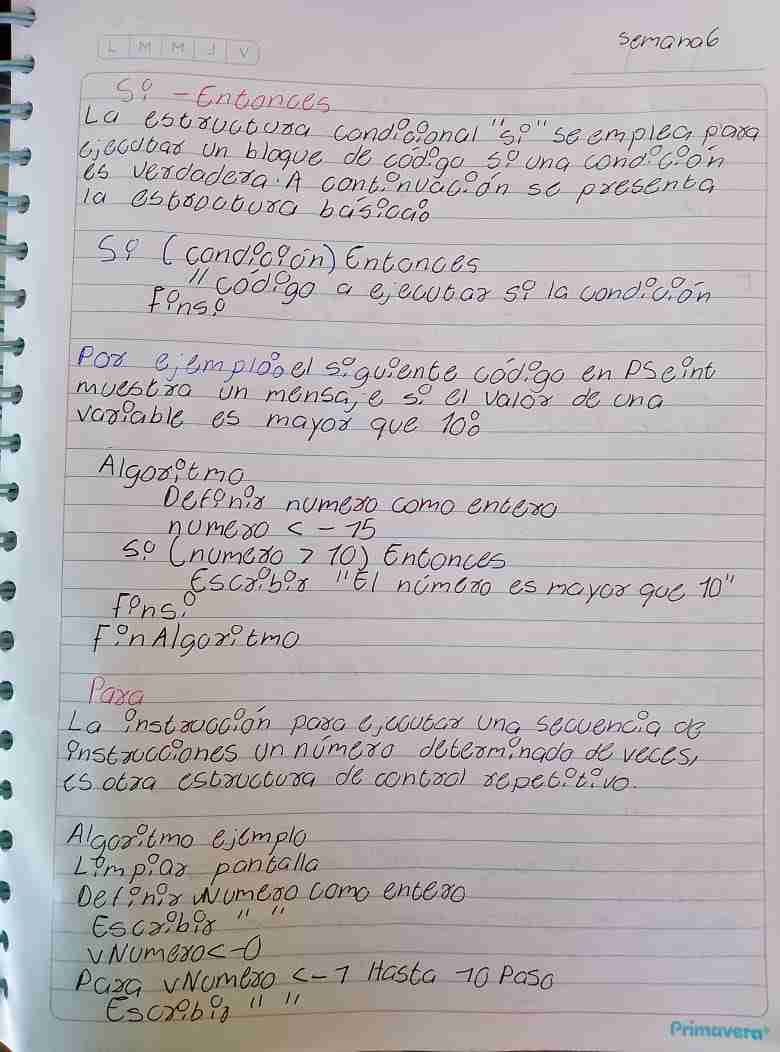 L M M J V
semana 6
Si - Entonces
La estructura condicional "si" se emplea para
ejecutar un bloque de código si una condición
es verdadera. A continuación se presenta
la estructura básica:
Si (condición) Entonces
// código a ejecutar si la condición
finsi
Por ejemplo: el siguiente código en PSeint
muestra un mensaje si el valor de una
variable es mayor que 10:
Algoritmo
Definir numero como entero
numero <- 15
Si (numero > 10) Entonces
Escribir "El número es mayor que 10"
finsi
FinAlgoritmo
Para
La instrucción para ejecutar una secuencia de
instrucciones un número determinado de veces,
es otra estructura de control repetitivo.
Algoritmo ejemplo
Limpiar pantalla
Definir vNumero como entero
Escribir " "
vNumero <- 0
Para vNumero <- 1 Hasta 10 Paso
Escribir " "
Primavera